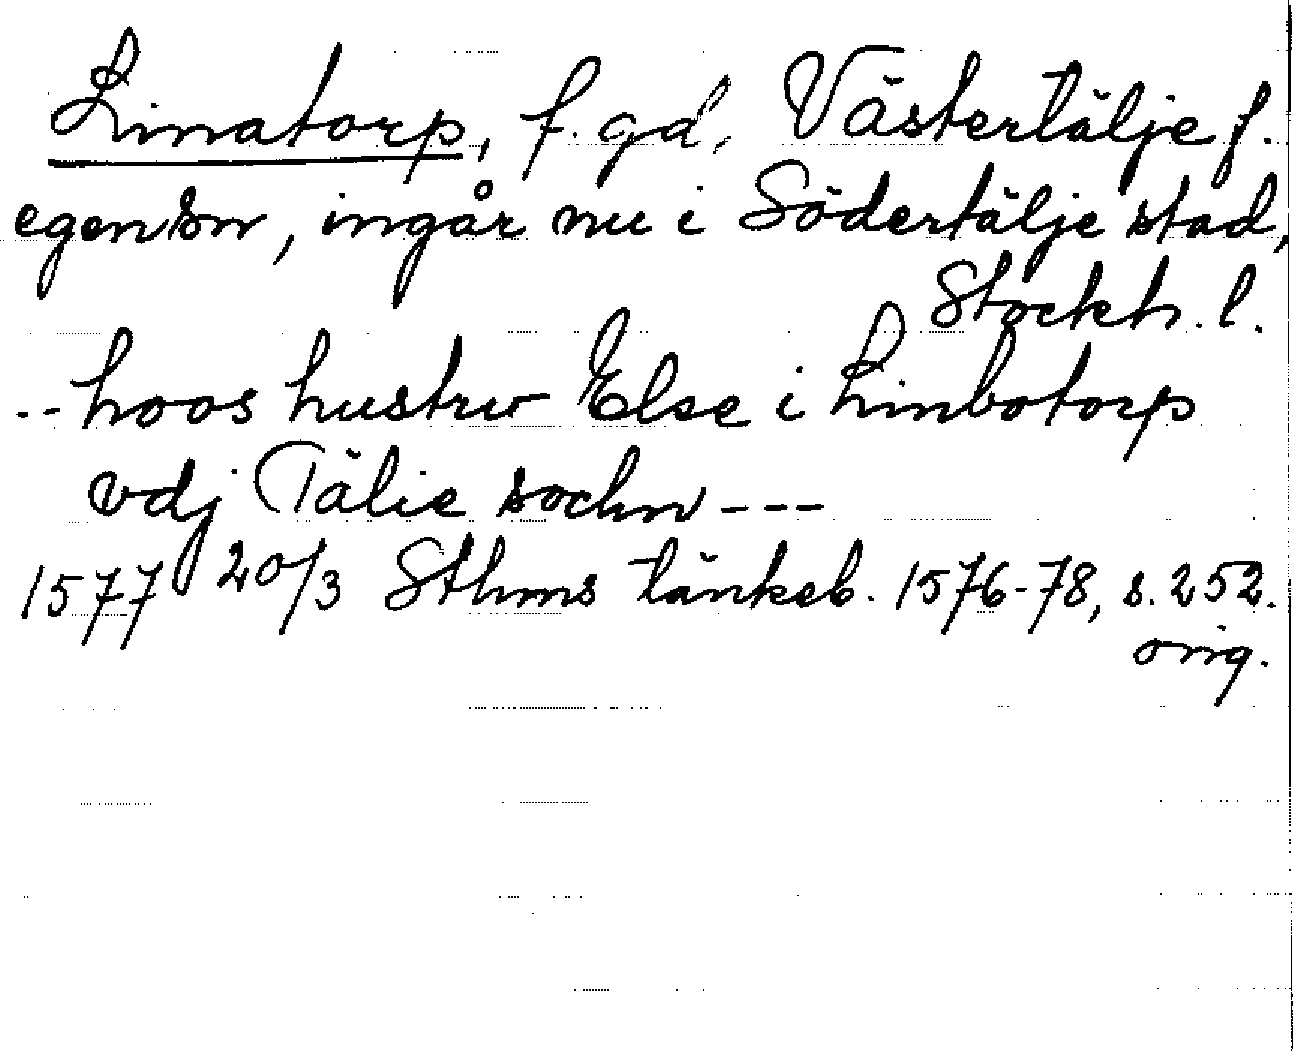 Linatorp, f. gd, Västertälje f.
egen sn, ingår nu i Södertälje stad,
Stockh. l.
-- hoos hustrw Else i Linbotorp
vdj Tälie sochn ---
1577 20/3 Sthms tänkeb. 1576-78, s. 252.
orig.